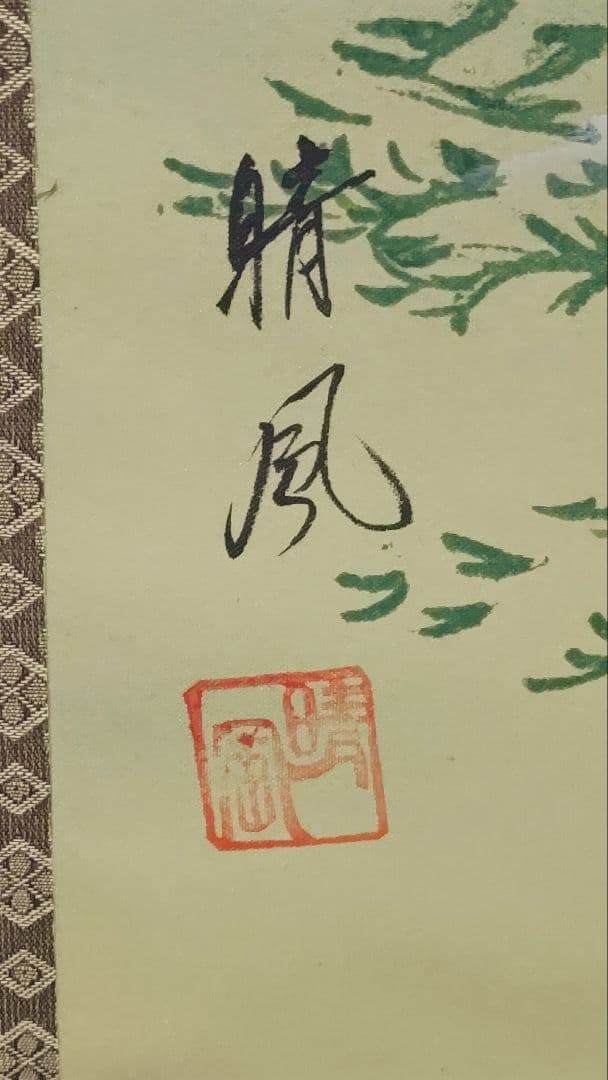 晴風
晴風